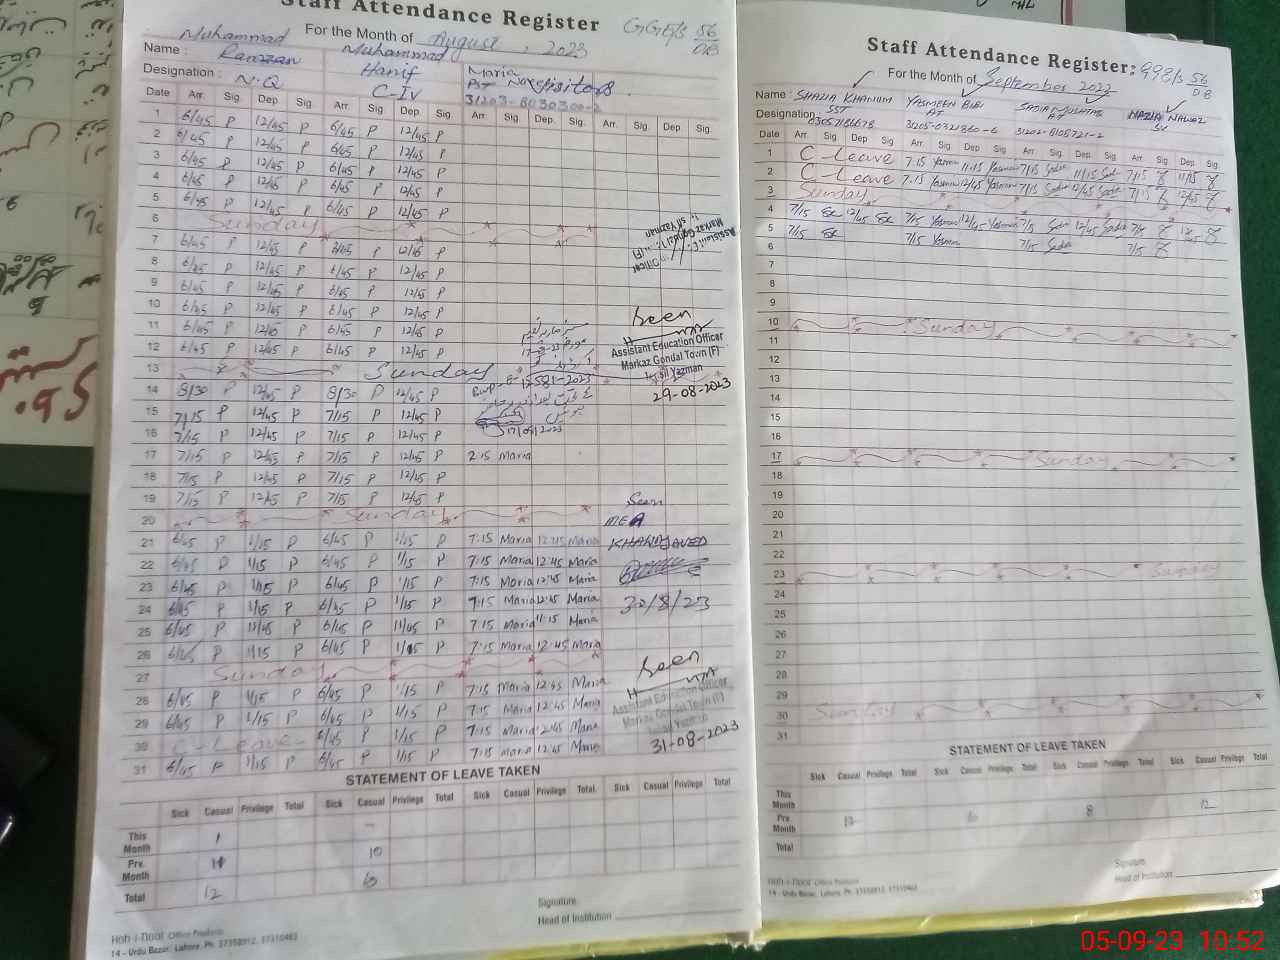 Staff Attendance Register
For the Month of August, 2023
GGE/s 56/DB
Name : Muhammad Ramzan Muhammad Hanif Maria
Designation : N.Q C-IV
31203-8030300-2
Date Arr. Sig. Dep. Sig. Arr. Sig. Dep. Sig. Arr. Sig. Dep. Sig. Arr. Sig. Dep. Sig.
1 6/45 P 12/45 P 6/45 P 12/45 P
2 6/45 P 12/45 P 6/45 P 12/45 P
3 6/45 P 12/45 P 6/45 P 12/45 P
4 6/45 P 12/45 P 6/45 P 12/45 P
5 6/45 P 12/45 P 6/45 P 12/45 P
6 Sunday
7 6/45 P 12/45 P P 12/45 P
8 6/45 P 12/45 P 6/45 P 12/45 P
9 6/45 P 12/45 P 6/45 P 12/45 P
10 6/45 P 12/45 P 6/45 P 12/45 P
11 6/45 P 12/45 P 6/45 P 12/45 P
12 6/45 P 12/45 P 6/45 P 12/45 P
13 Sunday
14 8/30 P 12/45 P 8/30 P 12/45 P
15 7/15 P 12/45 P 7/15 P 12/45 P
16 7/15 P 12/45 P 7/15 P 12/45 P
17 7/15 P 12/45 P 7/15 P 12/45 P 2:15 Maria
18 7/15 P 12/45 P 7/15 P 12/45 P
19 7/15 P 12/45 P 7/15 P 12/45 P
20 Sunday
21 6/45 P 1/15 P 6/45 P 1/15 P 7:15 Maria 12:45 Maria
22 6/45 P 1/15 P 6/45 P 1/15 P 7:15 Maria 12:45 Maria
23 6/45 P 1/15 P 6/45 P 1/15 P 7:15 Maria 12:45 Maria
24 6/45 P 1/15 P 6/45 P 1/15 P 7:15 Maria 12:45 Maria
25 6/45 P 11/45 P 6/45 P 11/45 P 7:15 Maria 11:15 Maria
26 6/45 P 1/15 P 6/45 P 1/15 P 7:15 Maria 12:45 Maria
27 Sunday
28 6/45 P 1/15 P 6/45 P 1/15 P 7:15 Maria 12:45 Maria
29 6/45 P 1/15 P 6/45 P 1/15 P 7:15 Maria 12:45 Maria
30 C-Leave 6/45 P 1/15 P 7:15 Maria 12:45 Maria
31 6/45 P 1/15 P 6/45 P 1/15 P 7:15 Maria 12:45 Maria
Seen
Assistant Education Officer
Markaz Gondal Town (F)
Tehsil Yazman
29-08-2023
Seen
MEA
KHALID JAVED
30/8/23
Seen
Assistant Education Officer
Markaz Gondal Town (F)
Tehsil Yazman
31-08-2023
STATEMENT OF LEAVE TAKEN
Sick Casual Privilege Total Sick Casual Privilege Total Sick Casual Privilege Total Sick Casual Privilege Total
This Month 1 -
Pre. Month 11 10
Total 12 10
Signature
Head of Institution
Hoh-i-Noor Office Products
14 - Urdu Bazar, Lahore. Ph: 37358912, 37310463
Staff Attendance Register:
For the Month of September 2023
Name : SHAZIA KHANUM YASMEEN BIBI NAZIA NAWAZ
Designation SST
31205-0321360-6 31202-8108721-2
Date Arr. Sig. Dep. Sig. Arr. Sig. Dep. Sig. Arr. Sig. Dep. Sig. Arr. Sig. Dep. Sig.
1 C-Leave 7:15 Yasmin 11:15 Yasmin 7/15 Sadia 11/15 Sadia 7/15 11/15
2 C-Leave 7:15 Yasmin 12/45 Yasmin 7/15 Sadia 12/45 Sadia 7/15 12/45
3 Sunday
4 7/15 12/45 7/15 Yasmin 12/45 Yasmin 7/15 Sadia 12/45 Sadia 7/15 12/45
5 7/15 7/15 Yasmin 7/15 Sadia 7/15
6
7
8
9
10 Sunday
11
12
13
14
15
16
17 Sunday
18
19
20
21
22
23 Sunday
24
25
26
27
28
29
30 Sunday
31
STATEMENT OF LEAVE TAKEN
Sick Casual Privilege Total Sick Casual Privilege Total Sick Casual Privilege Total Sick Casual Privilege Total
This Month
Pre. Month 8 12
Total
Signature
Head of Institution
Hoh-i-Noor Office Products
14 - Urdu Bazar, Lahore. Ph: 37358912, 37310463
05-09-23 10:52